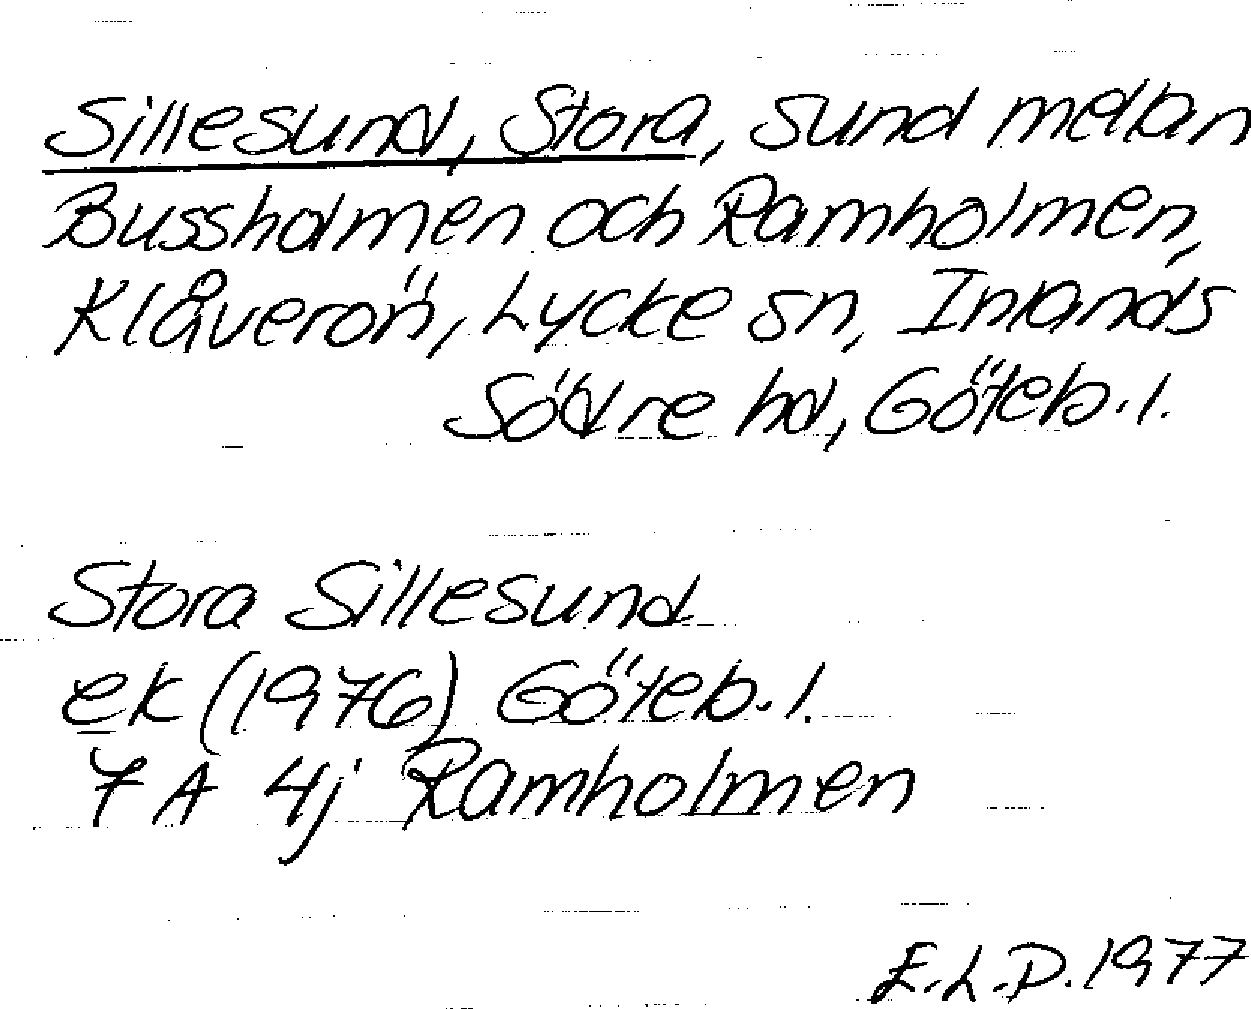 Sillesund, Stora, sund mellan
Bussholmen och Ramholmen,
Klåverön, Lycke sn, Inlands
Södre hd, Göteb. l.
Stora Sillesund
ek (1976) Göteb. l.
7 A 4j Ramholmen
E.L.D. 1977